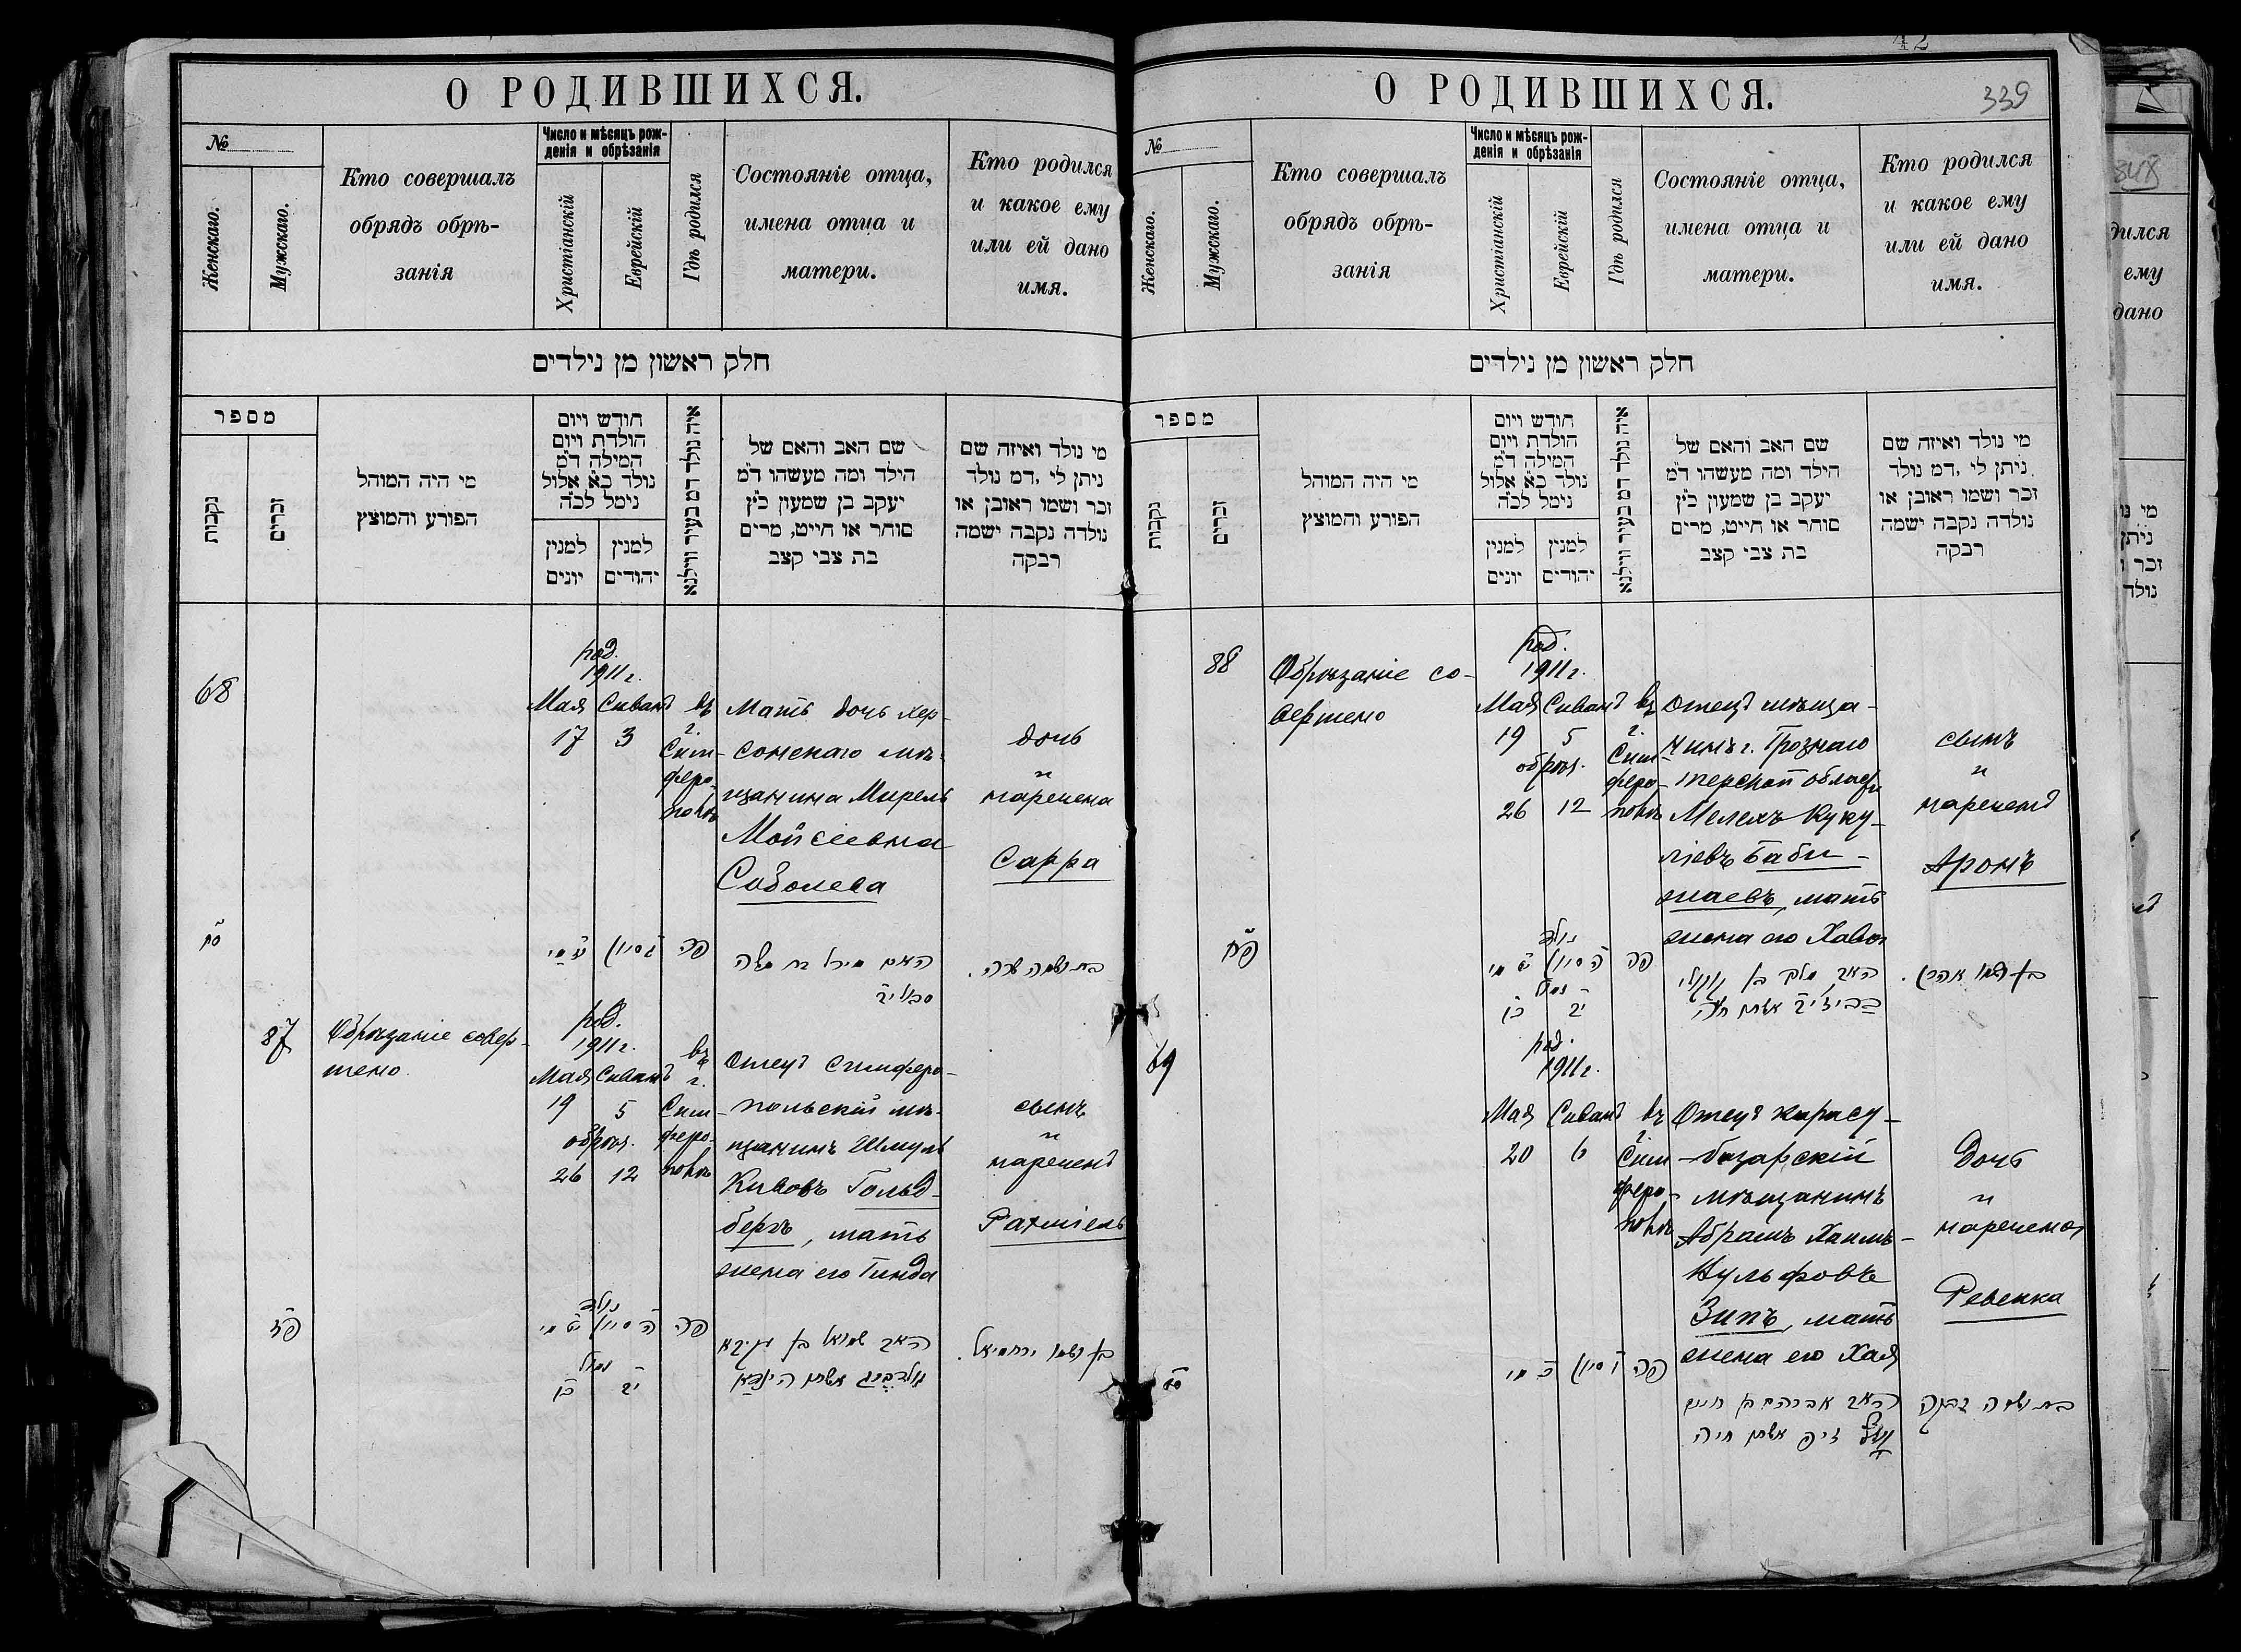 О РОДИВШИХСЯ.
№
Женскаго.
Мужскаго.
Кто совершалъ
обрядъ обрѣ-
занія
Число и мѣсяцъ рож-
денія и обрѣзанія
Христіанскій
Еврейскій
Гдѣ родился
Состояніе отца,
имена отца и
матери.
Кто родился
и какое ему
или ей дано
имя.
חלק ראשון מן נילדים
מספר
נקבות
זכרים
מי היה המוהל
הפורע והמוצץ
חודש ויום
הולדת ויום
המילה ד״מ
נולד כ״א אלול
נימל לכ״ה
למנין
יונים
למנין
יהודים
איה נולד דמ בעיר ווילנא
שם האב והאם של
הילד ומה מעשהו ד״מ
יעקב בן שמעון כ״ץ
סוחר או חייט, מרים
בת צבי קצב
מי נולד ואיזה שם
ניתן לי ,דמ נולד
זכר ושמו ראובן או
נולדה נקבה ישמה
רבקה
68
род.
1911 г.
Мая Сиванъ
17 3
въ
г.
Сим-
феро-
полѣ
Мать дочь хер-
сонскаго мѣ-
щанина Мирель
Мойсіевна
Соболева
дочь
и
наречена
Сарра
סח
ג סיון
פה
האם מירל בת משה
בת ושמה שרה.
87
Обрѣзаніе совер-
шено
род.
1911 г.
Мая Сиванъ
19 5
обрѣз.
26 12
въ
г.
Сим-
феро-
полѣ
Отецъ симферо-
польскій мѣ-
щанинъ Шмуль
Кивовъ Гольд-
бергъ, мать
жена его Гинда
сынъ
и
нареченъ
Рахміель
פז
נולד
ה סיון
נימול
יב
פה
האב שמואל בן עקיבא
גולדבערג אשתו הינדא
בן ושמו ירחמיאל.
42
339
О РОДИВШИХСЯ.
№
Женскаго.
Мужскаго.
Кто совершалъ
обрядъ обрѣ-
занія
Число и мѣсяцъ рож-
денія и обрѣзанія
Христіанскій
Еврейскій
Гдѣ родился
Состояніе отца,
имена отца и
матери.
Кто родился
и какое ему
или ей дано
имя.
חלק ראשון מן נילדים
מספר
נקבות
זכרים
מי היה המוהל
הפורע והמוצץ
חודש ויום
הולדת ויום
המילה ד״מ
נולד כ״א אלול
נימל לכ״ה
למנין
יונים
למנין
יהודים
איה נולד דמ בעיר ווילנא
שם האב והאם של
הילד ומה מעשהו ד״מ
יעקב בן שמעון כ״ץ
סוחר או חייט, מרים
בת צבי קצב
מי נולד ואיזה שם
ניתן לי ,דמ נולד
זכר ושמו ראובן או
נולדה נקבה ישמה
רבקה
88
Обрѣзаніе со-
вершено
род.
1911 г.
Мая Сиванъ
19 5
обрѣз.
26 12
въ
г.
Сим-
феро-
полѣ
Отецъ мѣща-
нинъ г. Грознаго
Терской области
Мелехъ Куку-
ліевъ Баби-
жаевъ, мать
жена его Хава
сынъ
и
нареченъ
Аронъ
פח
נולד
ה סיון
נימול
יב
פה
האב מלך בן קוקולי
אשתו חוה
בן ושמו אהרן.
69
род.
1911 г.
Мая Сиванъ
20 6
въ
г.
Сим-
феро-
полѣ
Отецъ карасу-
базарскій
мѣщанинъ
Абрамъ Хаимъ-
Вульфовъ
Зипъ, мать
жена его Хая
Дочь
и
наречена
Ревекка
סט
ו סיון
פה
האב אברהם בן חיים
וואלף זיפ אשתו חיה
בת ושמה רבקה
348
дился
ему
дано